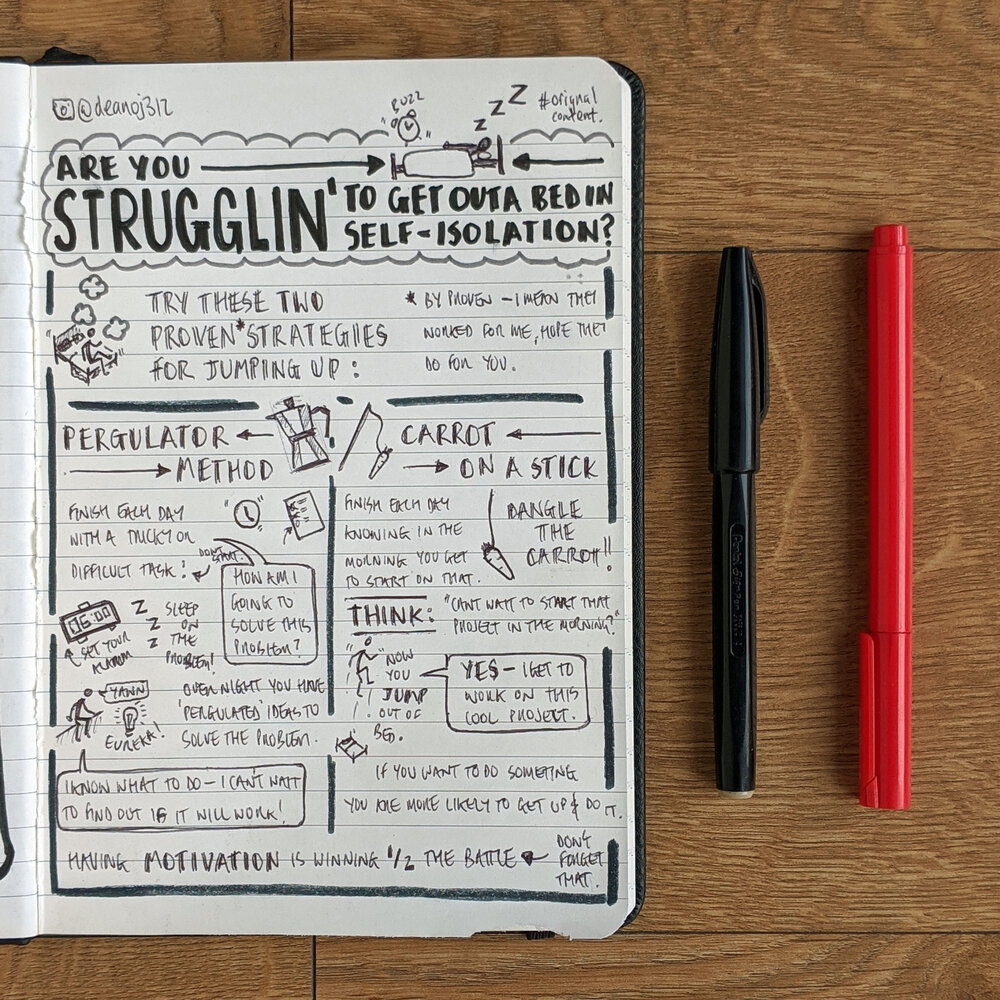 @deanoj312
BUZZ
Z Z Z
#orignal
content.
ARE YOU
STRUGGLIN' TO GET OUTA BED IN
SELF-ISOLATION?
TRY THESE TWO
PROVEN* STRATEGIES
FOR JUMPING UP:
* BY PROVEN - I MEAN THEY
WORKED FOR ME, HOPE THEY
DO FOR YOU.
PERGULATOR
METHOD
FINISH EACH DAY
WITH A TRICKY OR
DIFFICULT TASK!
DON'T
START.
HOW AM I
GOING TO
SOLVE THIS
PROBLEM?
06:00
SET YOUR
ALARM
Z
Z
Z
SLEEP
ON
THE
PROBLEM!
YAWN
EUREKA!
OVER NIGHT YOU HAVE
'PERGULATED' IDEAS TO
SOLVE THE PROBLEM.
I KNOW WHAT TO DO - I CAN'T WAIT
TO FIND OUT IF IT WILL WORK!
CARROT
ON A STICK
FINISH EACH DAY
KNOWING IN THE
MORNING YOU GET
TO START ON THAT.
DANGLE
THE
CARROT!!
THINK:
"CAN'T WAIT TO START THAT
PROJECT IN THE MORNING?"
"NOW
YOU
JUMP
OUT OF
BED.
YES - I GET TO
WORK ON THIS
COOL PROJECT.
IF YOU WANT TO DO SOMETING
YOU ARE MORE LIKELY TO GET UP & DO IT.
HAVING MOTIVATION IS WINNING 1/2 THE BATTLE
DON'T
FORGET
THAT.
Pentel Sign Pen